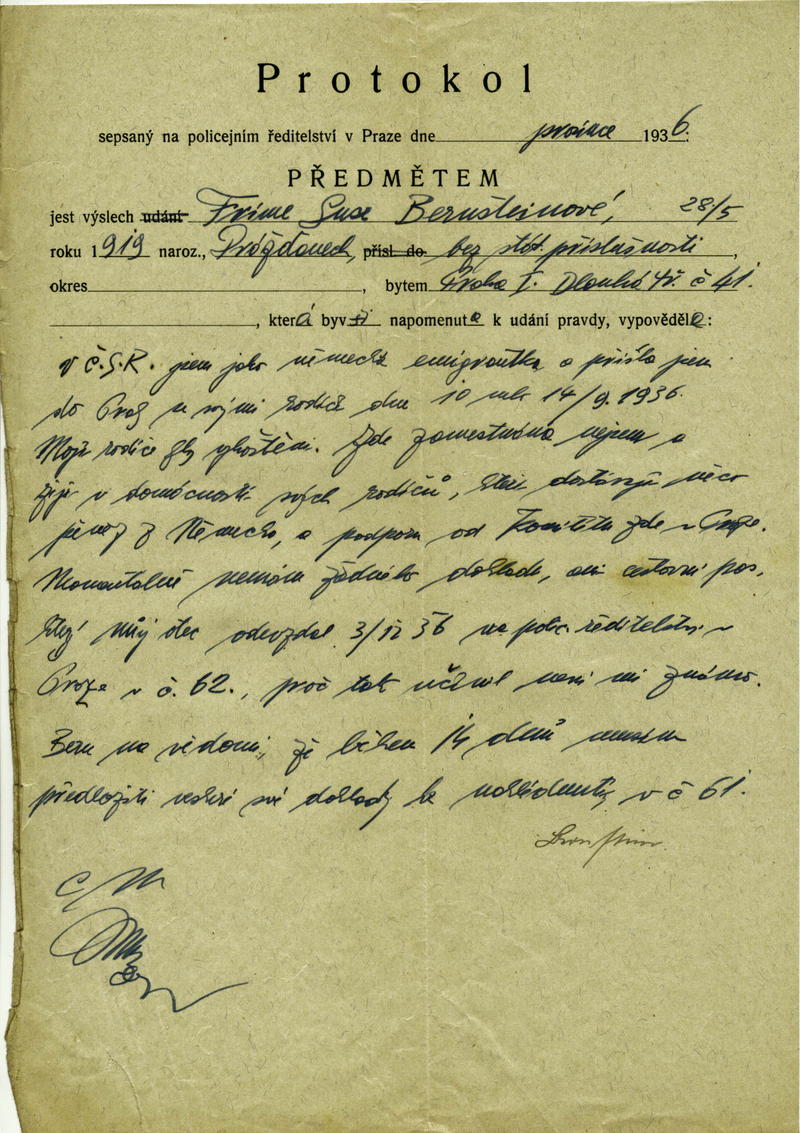 Protokol
sepsaný na policejním ředitelství v Praze dne prosince 1936.
PŘEDMĚTEM
jest výslech udání Bernsteinové, 28/5
roku 1919 naroz., Drážďanech, přísl. do bez stát. příslušnosti,
okres , bytem Praha I. Dlouhá tř. č 41.
, která byvši napomenuta k udání pravdy, vypověděla:
V Č.S.R. jsem jako německá emigrantka a přišla jsem
do Prahy se svými rodiči dne 14/9. 1936.
Moji rodiče Zde zaměstnána nejsem a
žiji v domácnosti svých rodičů, kteří dostávají něco
peněz z Německa, a podporu od Komitétu zde v Praze.
Momentálně nemám žádného dokladu, ani cestovní pas,
který můj otec odevzdal 3/12 36 na polic. ředitelství v
Praze v č. 62., proč tak učinil není mi známo.
Beru na vědomí, že během 14 dnů musím
předložiti veškeré své doklady v č 61.